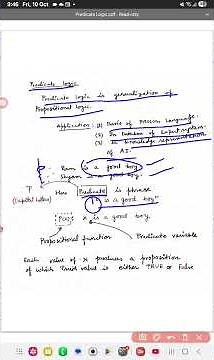 9:46 Fri, 10 Oct
Predicate Logic.pdf - Read-only
Predicate Logic
Predicate Logic is generalization of
Propositional Logic.
Application: (1) Basis of Prolog Language.
(2) In Database of Expert system.
(3) In knowledge representation
of AI.
Ram is a good boy
Shyam is a good boy.
Here Predicate is phrase
(Capital letter) "is a good boy"
P(x): x is a good boy.
Propositional function Predicate variable
Each value of x produces a proposition
of which Truth value is either TRUE or False